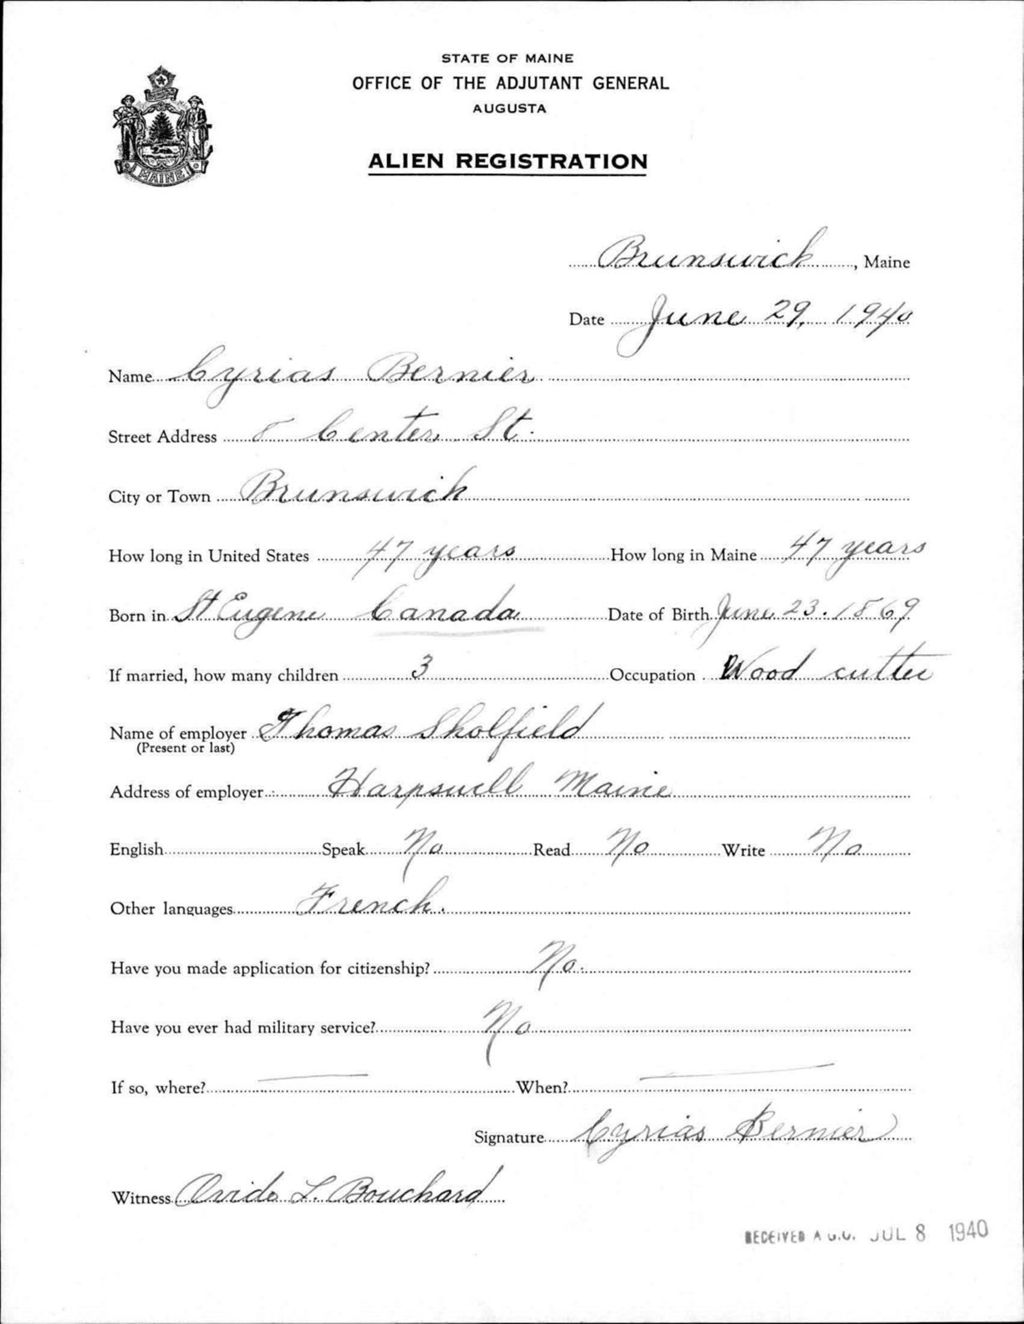 STATE OF MAINE
OFFICE OF THE ADJUTANT GENERAL
AUGUSTA
MAINE
ALIEN REGISTRATION
Brunswick, Maine
Date June 29, 1940
Name Cyrias Bernier
Street Address 8 Center St.
City or Town Brunswick
How long in United States 47 years How long in Maine 47 years
Born in St Eugene Canada Date of Birth June 23. 1869
If married, how many children 3 Occupation Wood cutter
Name of employer Thomas Sholfield
(Present or last)
Address of employer Harpswell Maine
English Speak No Read No Write No
Other languages French.
Have you made application for citizenship? No.
Have you ever had military service? No
If so, where? When?
Signature Cyrias Bernier
Witness Ovide L. Bouchard
RECEIVED A.G.O. JUL 8 1940